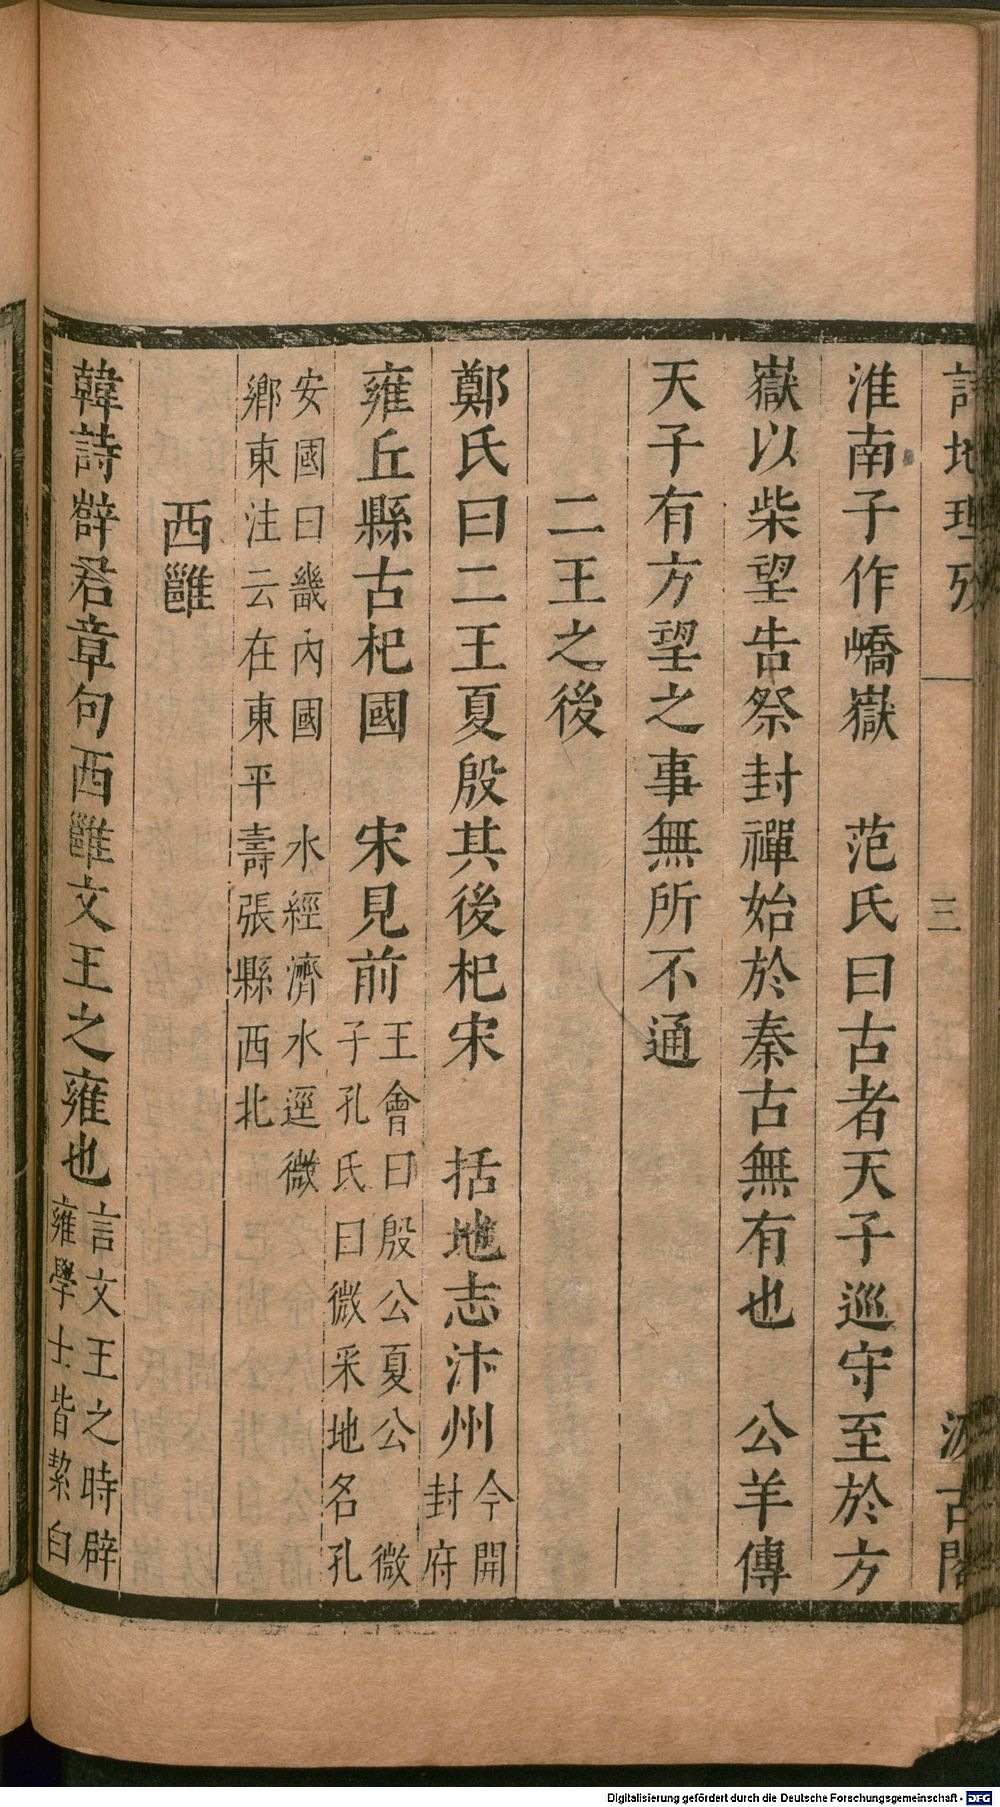 詩地理攷 三 汲古閣
淮南子作嶠嶽 范氏曰古者天子巡守至於方
嶽以柴望告祭封禪始於秦古無有也 公羊傳
天子有方望之事無所不通
二王之後
鄭氏曰二王夏殷其後杞宋 括地志汴州今開封府
雍丘縣古杞國 宋見前王會曰殷公夏公 微子孔氏曰微采地名孔
安國曰畿內國 水經濟水逕微鄉東注云在東平壽張縣西北
西雝
韓詩薛君章句西雝文王之雍也言文王之時辟雍學士皆絜白
Digitalisierung gefördert durch die Deutsche Forschungsgemeinschaft - DFG